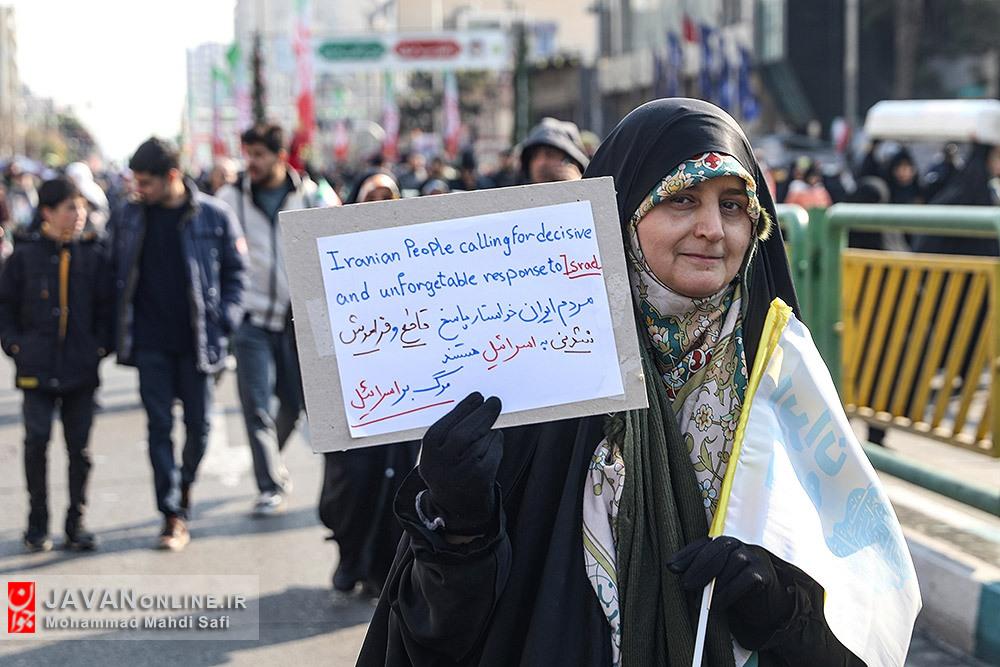 Iranian People calling for decisive
and unforgetable response to Israel
مردم ایران خواستار پاسخ قاطع و فراموش
نشدنی به اسرائیل هستند
مرگ بر اسرائیل
جوان
JAVANONLINE.IR
Mohammad Mahdi Safi